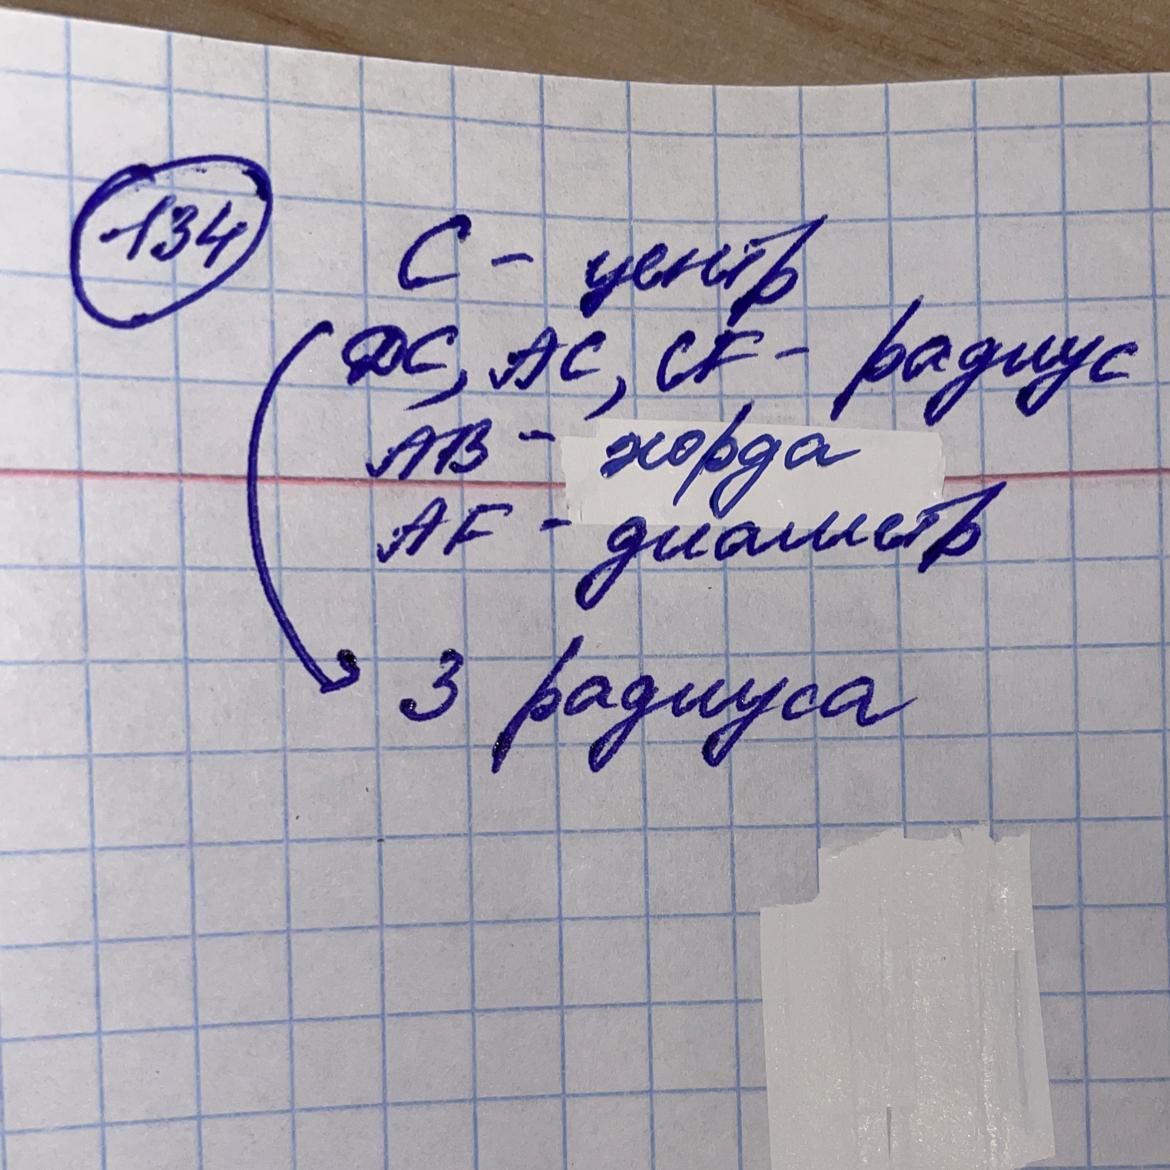 134
C - центр
DC, AC, CF - радиус
AB - хорда
AF - диаметр
3 радиуса